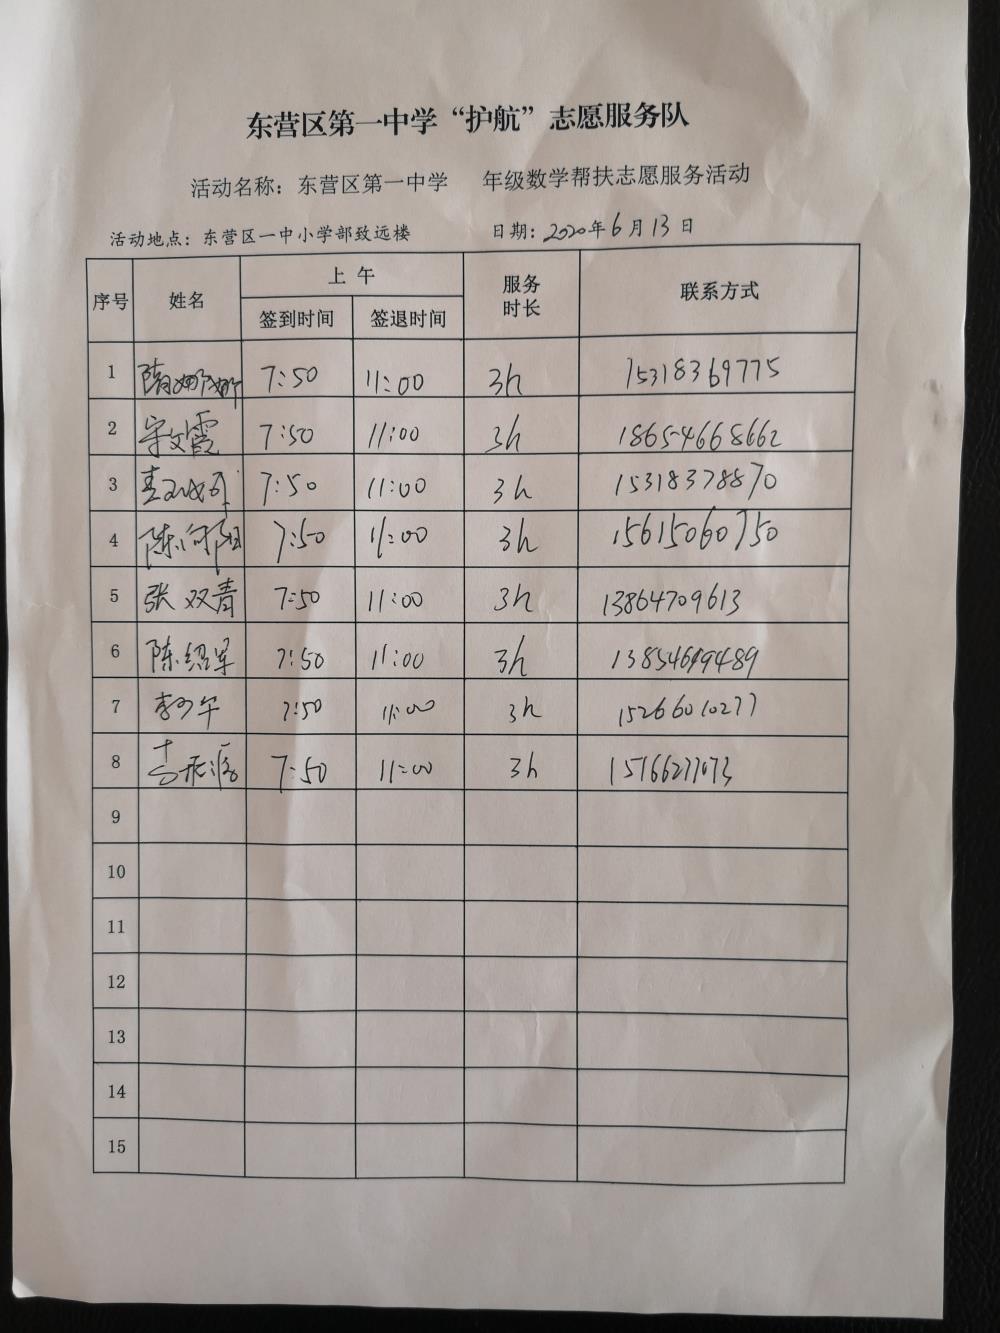 东营区第一中学“护航”志愿服务队
活动名称：东营区第一中学 年级数学帮扶志愿服务活动
活动地点：东营区一中小学部致远楼 日期：2020年6月13日
序号 姓名 上午 服务时长 联系方式
签到时间 签退时间
1 隋娜娜 7:50 11:00 3h 15318369775
2 宋文霞 7:50 11:00 3h 18654668662
3 7:50 11:00 3h 15318378870
4 陈向阳 7:50 11:00 3h 15615060750
5 张双青 7:50 11:00 3h 13864709613
6 陈绍军 7:50 11:00 3h
7 李少华 7:50 11:00 3h 15266010277
8 7:50 11:00 3h
9
10
11
12
13
14
15